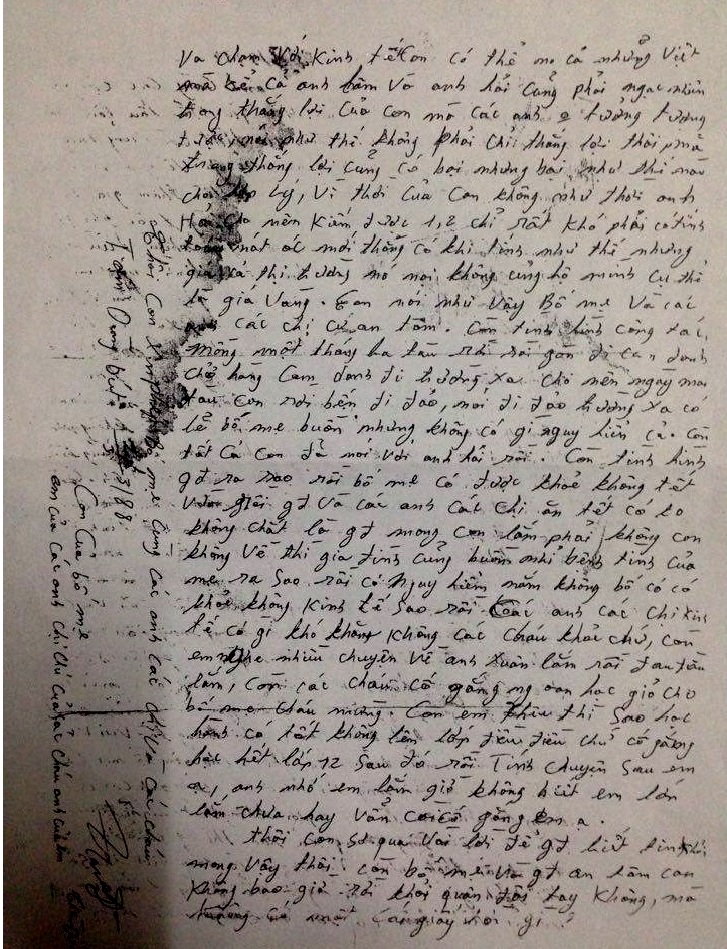 Va chạm với kinh tế con có thể mo cả những việt
mà kể cả anh Năm và anh hải cũng phải ngạc nhiên
trong thắng lợi của con mà các anh tưởng tượng
được, nói như thế không phải chỉ thắng lời thôi mà
trong thắng lợi cũng có bại nhưng bại như thế nào
cho hợp lý, vì thời của con không như thời anh
Hải cho nên kiếm được 1,2 chỉ rất khó phải có tính
toán nát óc mới thắng có khi tính như thế nhưng
giá cả thị trường nó nói không cũng hộ mình cụ thể
là giá vàng. Con nói như vậy Bố mẹ và các
anh các chị cứ an tâm. Còn tình hình công tác,
mồng một tháng ba tàu rời đi cam danh
chở hàng cam danh đi trường xa cho nên ngày mai
tàu con rời bến đi đảo, nói đi đảo trường xa có
lẽ bố mẹ buồn nhưng không có gì nguy hiểm cả. Còn
tất cả con đã nói với anh hải rồi. Còn tình hình
gđ ra sao rồi bố mẹ có được khoẻ không tết
vừa rồi gđ và các anh các chị ăn tết có to
không chắc là gđ mong con lắm phải không con
không về thì gia đình cũng buồn nhỉ bệnh tình của
mẹ ra sao rồi có nguy hiểm nắm không bố có có
khoẻ không kinh tế sao rồi. Các anh các chị kinh
tế có gì khó khăn không các cháu khoẻ chứ, con
em nghe nhiều chuyện về anh xuân lắm rồi đau đầu
lắm, còn các cháu cố gắng ngoan học giỏi cho
bố mẹ cháu mừng. Còn em thì sao học
hành có tốt không lên lớp đều đều chứ cố gắng
học hết lớp 12 sau đó rồi tính chuyện sau em
ạ, anh nhớ em lắm giờ không biết em lớn
lắm chưa hay vẫn còi cố gắng em ạ.
thôi con sơ qua vài lời để gđ biết tình
mong vậy thôi. còn bố mẹ và gđ an tâm con
không bao giờ rời khỏi quân đội tay không, mà
có một giấy gì
Thôi con xin bố mẹ cùng các anh các chị và các cháu
Tạm dừng bút
3/88
Con của bố mẹ
em của các anh chị chú của các cháu anh của em